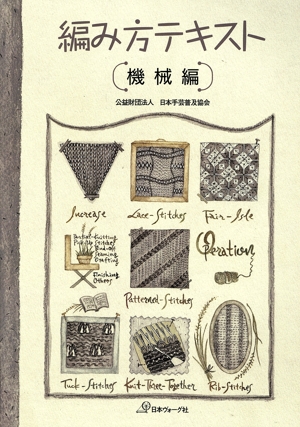 編み方テキスト
機械編
公益財団法人 日本手芸普及協会
Increase
Lace-Stitches
Fair-Isle
Partial-Knitting
Pick-Up Stitches
Bind-off
Seaming
Grafting
Finishing
Others
Operation
Patterned-Stitches
Tuck-Stitches
Knit-Three-Together
Rib-Stitches
日本ヴォーグ社